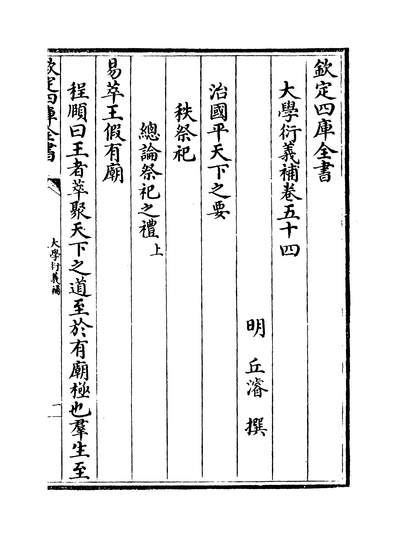 欽定四庫全書
大學衍義補卷五十四
明 丘濬 撰
治國平天下之要
秩祭祀
總論祭祀之禮上
易萃王假有廟
程頤曰王者萃聚天下之道至於有廟極也羣生至
欽定四庫全書
大學衍義補
一